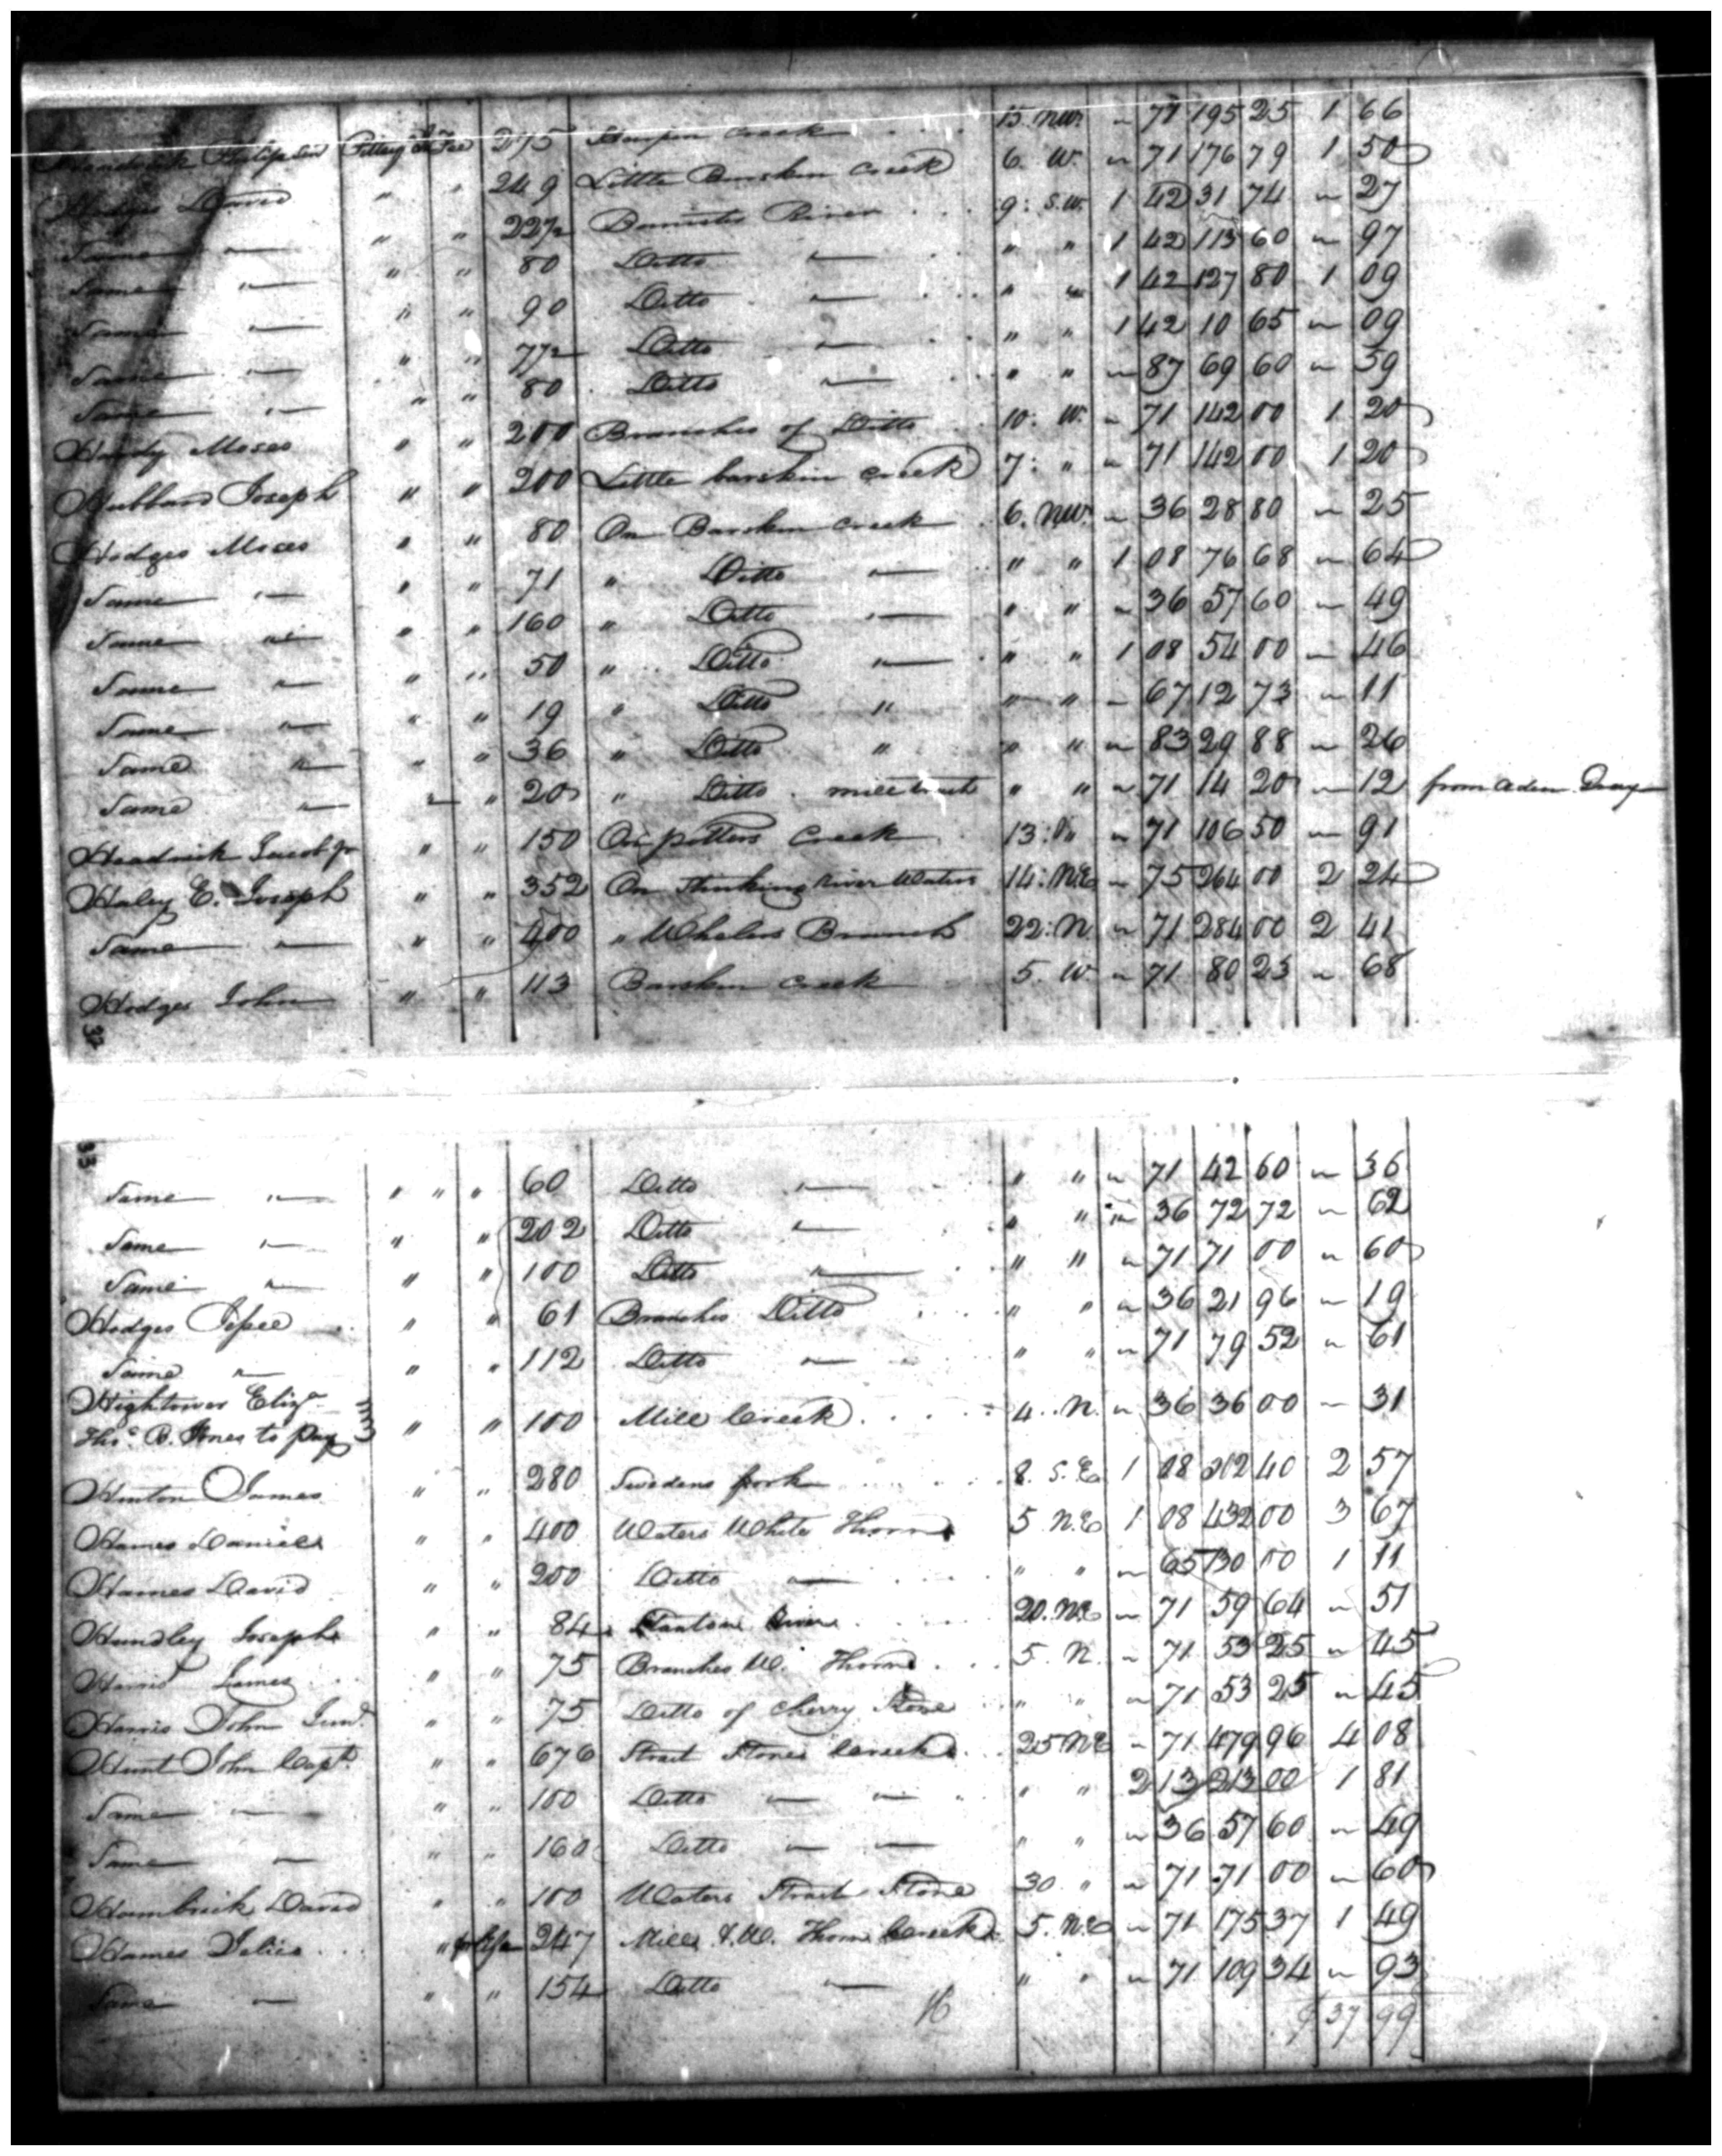 Hendrick Philip Sen Pittsy A Fee 275 Hampin Creek 15. NW. " 71 195 25 1 66
Hodges David " " 249 Little Barskin Creek 6. W. " 71 176 79 1 50
Same " " " 22½ Bannister River 9. S.W. 1 42 31 74 " 27
Same " " " 80 Ditto " " " 1 42 113 60 " 97
Same " " " 90 Ditto " " " 1 42 127 80 1 09
Same " " " 7½ Ditto " " " 1 42 10 65 " 09
Same " " " 80 Ditto " " " " 87 69 60 " 59
Handy Moses " " 200 Branches of Ditto 10. W. " 71 142 00 1 20
Hubbard Joseph " " 200 Little barskin Creek 7. " " 71 142 00 1 20
Hodges Moses " " 80 On Barskin Creek 6. NW. " 36 28 80 " 25
Same " " " 71 " Ditto " " " 1 08 76 68 " 64
Same " " " 160 " Ditto " " " " 36 57 60 " 49
Same " " " 50 " Ditto " " " 1 08 54 00 " 46
Same " " " 19 " Ditto " " " " 67 12 73 " 11
Same " " " 36 " Ditto " " " " 83 29 88 " 26
Same " " " 20 " Ditto mill tract " " " 71 14 20 " 12 from Aden Gray
Headrick Jacob Jr " " 150 On potters Creek 13. " " 71 106 50 " 91
Haley E. Joseph " " 352 On Stinking River Waters 14. N.E " 75 264 00 2 24
Same " " " 400 " Whelers Branch 22. N " 71 284 00 2 41
Hodges John " " 113 Barskin Creek 5. W. " 71 80 23 " 68
32
33
Same " " " " 60 Ditto " " " " 71 42 60 " 36
Same " " " 202 Ditto " " " " 36 72 72 " 62
Same " " " 100 Ditto " " " " 71 71 00 " 60
Hodges Jesse " " 61 Branches Ditto " " " 36 21 96 " 19
Same " " " 112 Ditto " " " " 71 79 52 " 61
Hightower Eliza
Thos. B. Jones to pay " " 100 Mill Creek 4. N. " 36 36 00 " 31
Hinton James " " 280 Swedens fork 8. S.E 1 08 302 40 2 57
Hames Daniel " " 400 Waters White Thorn 5 N.E 1 08 432 00 3 67
Hames David " " 200 Ditto " " " " 65 130 00 1 11
Hundley Joseph " " 84 Stanton River 20. N.E " 71 59 64 " 51
Harris James " " 75 Branches W. Thorn 5. N. " 71 53 25 " 45
Harris John Junr. " " 75 Ditto of Cherry Stone " " " 71 53 25 " 45
Hunt John Capt. " " 676 Strait Stone Creek 25 N.E " 71 479 96 4 08
Same " " " 100 Ditto " " " " 2 13 213 00 1 81
Same " " " 160 Ditto " " " " " 36 57 60 " 49
Hambrick David " " 100 Waters Strait Stone 30 " " 71 71 00 " 60
Hames Delice " life 247 Mill & W. Thorn Creek 5. N.E " 71 175 37 1 49
Same " " " 154 Ditto " " " " 71 109 34 " 93
16 $ 37 99